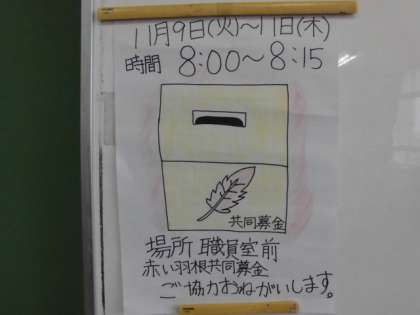 11月9日(火)〜11日(木)
時間 8:00〜8:15
共同募金
場所 職員室前
赤い羽根共同募金
ご協力おねがいします。